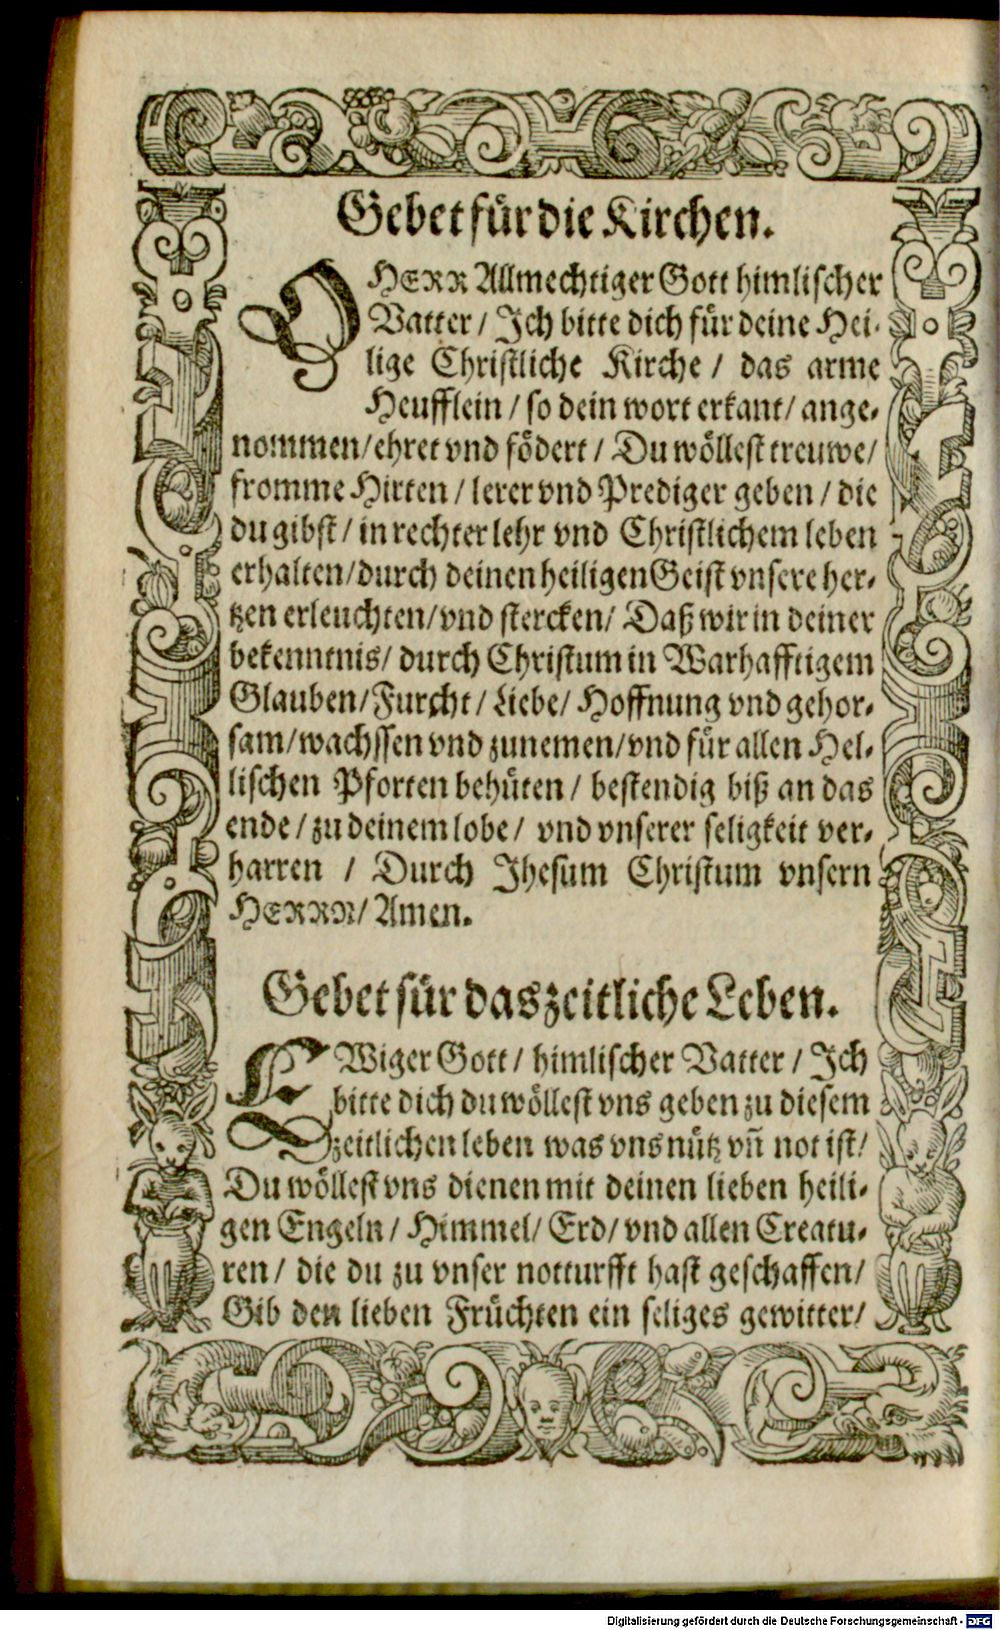 Gebet für die Kirchen.
O HERR Allmechtiger Gott himlischer
Vatter / Ich bitte dich für deine Hei-
lige Christliche Kirche / das arme
Heufflein / so dein wort erkant / ange-
nommen / ehret vnd födert / Du wöllest treuwe /
fromme Hirten / lerer vnd Prediger geben / die
du gibst / in rechter lehr vnd Christlichem leben
erhalten / durch deinen heiligen Geist vnsere her-
tzen erleuchten / vnd stercken / Daß wir in deiner
bekenntnis / durch Christum in Warhafftigem
Glauben / Furcht / Liebe / Hoffnung vnd gehor-
sam / wachssen vnd zunemen / vnd für allen Hel-
lischen Pforten behüten / bestendig biß an das
ende / zu deinem lobe / vnd vnserer seligkeit ver-
harren / Durch Jhesum Christum vnsern
HERRN / Amen.
Gebet für das zeitliche Leben.
EWiger Gott / himlischer Vatter / Ich
bitte dich du wöllest vns geben zu diesem
zeitlichen leben was vns nütz vn̄ not ist /
Du wöllest vns dienen mit deinen lieben heili-
gen Engeln / Himmel / Erd / vnd allen Creatu-
ren / die du zu vnser notturfft hast geschaffen /
Gib den lieben Früchten ein seliges gewitter /
Digitalisierung gefördert durch die Deutsche Forschungsgemeinschaft - DFG